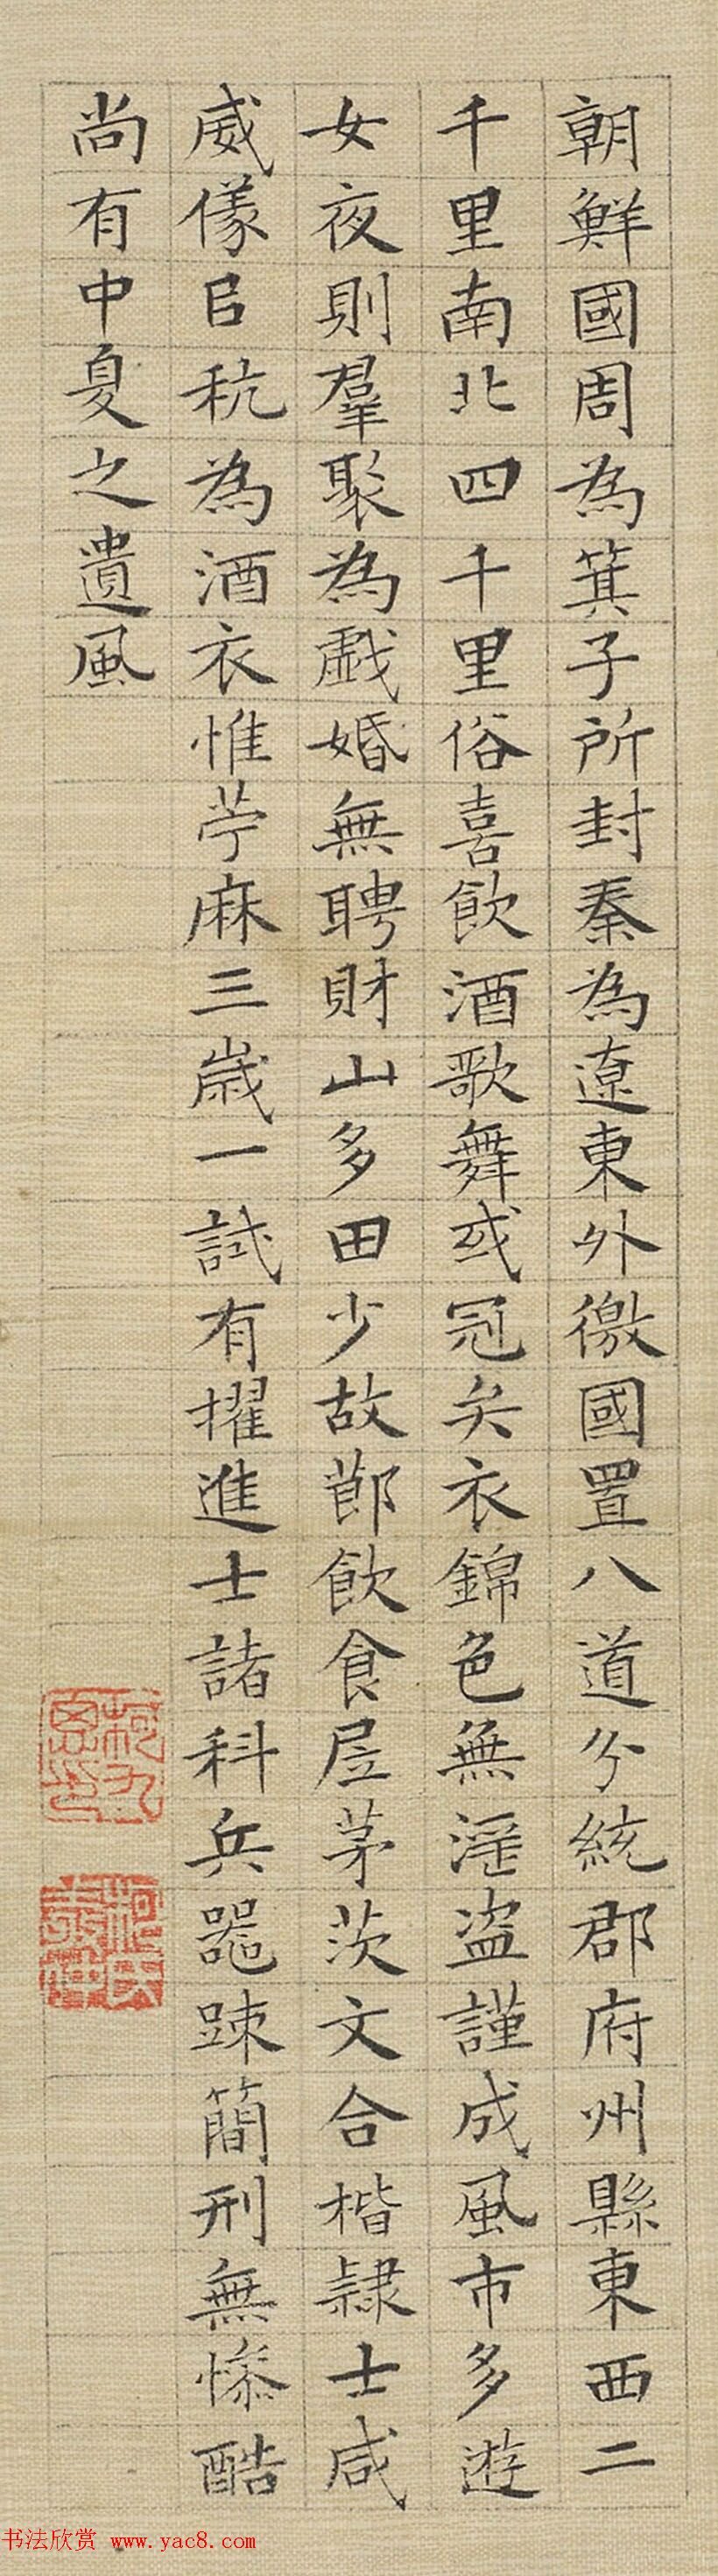 朝鮮國周為箕子所封秦為遼東外徼國置八道分統郡府州縣東西二
千里南北四千里俗喜飲酒歌舞或冠矣衣錦色無淫盜謹成風市多遊
女夜則羣聚為戱婚無聘財山多田少故節飲食屋茅茨文合楷隸士咸
威儀㠯秔為酒衣惟苧麻三歲一試有擢進士諸科兵器踈簡刑無慘酷
尚有中夏之遺風
柯九思印
书法欣赏 www.yac8.com